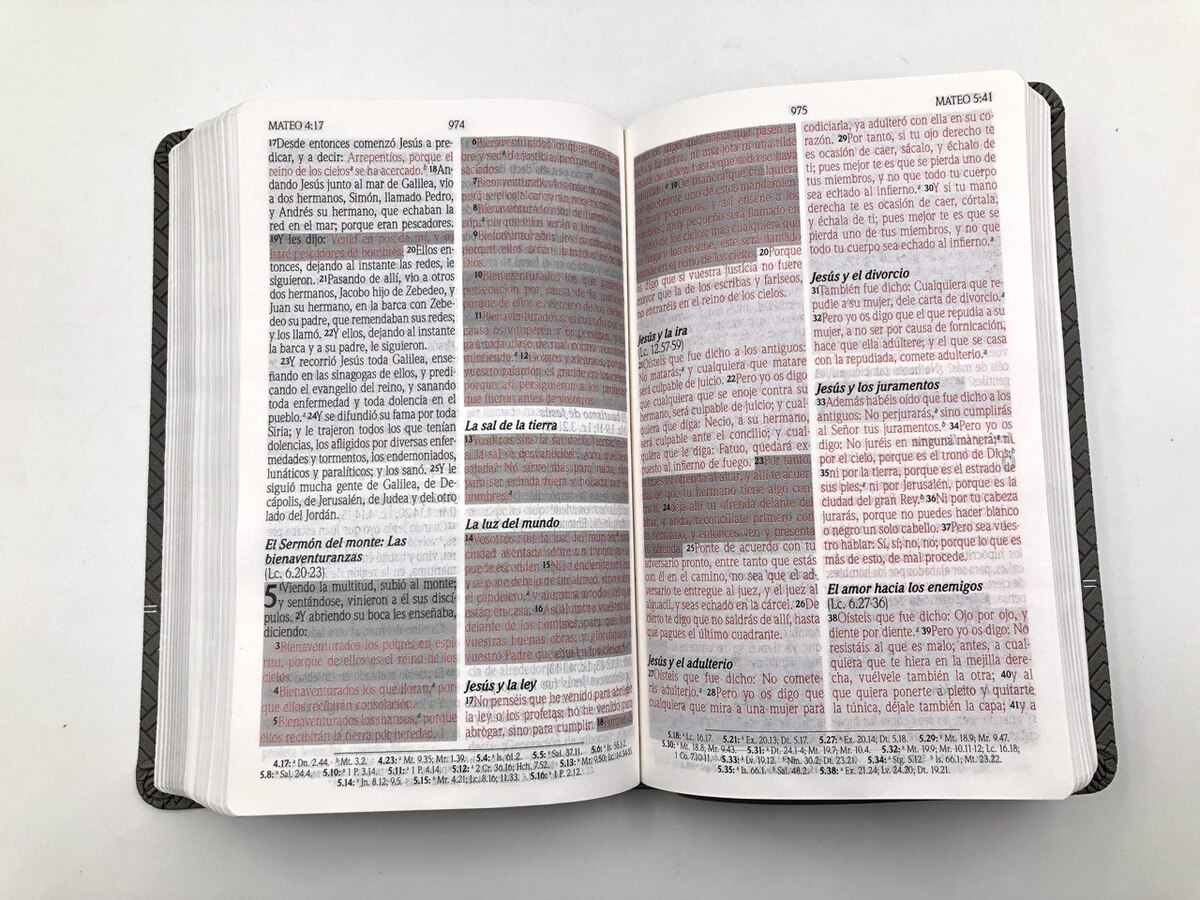 MATEO 4:17
974
17Desde entonces comenzó Jesús a pre-
dicar, y a decir: Arrepentíos, porque el
reino de los cielosᵃ se ha acercado.ᵇ 18An-
dando Jesús junto al mar de Galilea, vio
a dos hermanos, Simón, llamado Pedro,
y Andrés su hermano, que echaban la
red en el mar; porque eran pescadores.
19Y les dijo: Venid en pos de mí, y os
haré pescadores de hombres. 20Ellos en-
tonces, dejando al instante las redes, le
siguieron. 21Pasando de allí, vio a otros
dos hermanos, Jacobo hijo de Zebedeo, y
Juan su hermano, en la barca con Zebe-
deo su padre, que remendaban sus redes;
y los llamó. 22Y ellos, dejando al instante
la barca y a su padre, le siguieron.
23Y recorrió Jesús toda Galilea, ense-
ñando en las sinagogas de ellos, y predi-
cando el evangelio del reino, y sanando
toda enfermedad y toda dolencia en el
pueblo.ᵃ 24Y se difundió su fama por toda
Siria; y le trajeron todos los que tenían
dolencias, los afligidos por diversas enfer-
medades y tormentos, los endemoniados,
lunáticos y paralíticos; y los sanó. 25Y le
siguió mucha gente de Galilea, de De-
cápolis, de Jerusalén, de Judea y del otro
lado del Jordán.
El Sermón del monte: Las
bienaventuranzas
(Lc. 6.20-23)
5 1Viendo la multitud, subió al monte;
y sentándose, vinieron a él sus discí-
pulos. 2Y abriendo su boca les enseñaba,
diciendo:
3Bienaventurados los pobres en espí-
ritu, porque de ellos es el reino de los
cielos.
4Bienaventurados los que lloran,ᵃ por
que ellos recibirán consolación.
5Bienaventurados los mansos,ᵃ porque
ellos recibirán la tierra por heredad.
6Bienaventurados los que
y sed de justicia, porque ellos
7Bienaventurados los
8Bienaventurados los de limpio
porque ellos verán a
9Bienaventurados los
porque ellos serán llamados hijos de
Dios.
10Bienaventurados los que padecen
persecución por causa de la justicia
porque de ellos es el reino de los cielos.
11Bienaventurados sois cuando por mi
causa os vituperen y os persigan, y
toda clase de mal contra vosotros,
mintiendo. 12Gozaos y alegraos,
vuestro galardón es grande en los
que así persiguieron a los
que fueron antes de vosotros.
La sal de la tierra
13Vosotros sois la sal de la tierra;
si la sal se desvaneciere, ¿con qué
salada? No sirve más para nada,
para ser echada fuera y hollada por
hombres.ᵈ
La luz del mundo
14Vosotros sois la luz del mundo;
ciudad asentada sobre un monte no
puede esconder. 15Ni se enciende
y se pone debajo de un almud, sino
el candelero, y alumbra a todos
están en casa. 16Así alumbre vuestra
delante de los hombres, para que
vuestras buenas obras, y glorifiquen
vuestro Padre que está en los cielos.
Jesús y la ley
17No penséis que he venido para abrogar
la ley o los profetas; no he venido para
abrogar, sino para cumplir. 18Porque
4.17: ᵃ Dn. 2.44. ᵇ Mt. 3.2. 4.23: ᵃ Mt. 9.35; Mr. 1.39. 5.4: ᵃ Is. 61.2. 5.5: ᵃ Sal. 37.11. 5.6: ᵃ Is. 55.1-2.
5.8: ᵃ Sal. 24.4. 5.10: ᵃ 1 P. 3.14. 5.11: ᵃ 1 P. 4.14. 5.12: ᵃ 2 Cr. 36.16; Hch. 7.52. 5.13: ᵃ Mr. 9.50; Lc. 14.34-35.
5.14: ᵃ Jn. 8.12; 9.5. 5.15: ᵃ Mr. 4.21; Lc. 8.16; 11.33. 5.16: ᵃ 1 P. 2.12.
975
MATEO 5:41
que hasta que pasen el
y la tierra, ni una jota ni una tilde
de la ley, hasta que todo se haya
19De manera que cualquiera
uno de estos mandamientos
muy pequeños, y así enseñe a los
muy pequeño será llamado en
de los cielos; mas cualquiera que
y los enseñe, este será llamado
grande en el reino de los cielos. 20Porque
os digo que si vuestra justicia no fuere
mayor que la de los escribas y fariseos,
no entraréis en el reino de los cielos.
Jesús y la ira
(Lc. 12.57-59)
21Oísteis que fue dicho a los antiguos:
No matarás;ᵃ y cualquiera que matare
será culpable de juicio. 22Pero yo os digo
que cualquiera que se enoje contra su
hermano, será culpable de juicio; y cual-
quiera que diga: Necio, a su hermano,
será culpable ante el concilio; y cual-
quiera que diga: Fatuo, quedará ex-
puesto al infierno de fuego. 23Por tanto,
si traes tu ofrenda al altar, y allí te acuer-
das de que tu hermano tiene algo con-
tra ti, 24deja allí tu ofrenda delante del
altar, y anda, reconcíliate primero con
tu hermano, y entonces ven y presenta
tu ofrenda. 25Ponte de acuerdo con tu
adversario pronto, entre tanto que estás
con él en el camino, no sea que el ad-
versario te entregue al juez, y el juez al
alguacil, y seas echado en la cárcel. 26De
cierto te digo que no saldrás de allí, hasta
que pagues el último cuadrante.
Jesús y el adulterio
27Oísteis que fue dicho: No comete-
rás adulterio.ᵃ 28Pero yo os digo que
cualquiera que mira a una mujer para
codiciarla, ya adulteró con ella en su co-
razón. 29Por tanto, si tu ojo derecho te
es ocasión de caer, sácalo, y échalo de
ti; pues mejor te es que se pierda uno de
tus miembros, y no que todo tu cuerpo
sea echado al infierno.ᵃ 30Y si tu mano
derecha te es ocasión de caer, córtala,
y échala de ti; pues mejor te es que se
pierda uno de tus miembros, y no que
todo tu cuerpo sea echado al infierno.ᵃ
Jesús y el divorcio
31También fue dicho: Cualquiera que re-
pudie a su mujer, dele carta de divorcio.ᵃ
32Pero yo os digo que el que repudia a su
mujer, a no ser por causa de fornicación,
hace que ella adultere; y el que se casa
con la repudiada, comete adulterio.ᵃ
Jesús y los juramentos
33Además habéis oído que fue dicho a los
antiguos: No perjurarás,ᵃ sino cumplirás
al Señor tus juramentos.ᵇ 34Pero yo os
digo: No juréis en ninguna manera;ᵃ ni
por el cielo, porque es el trono de Dios;ᵇ
35ni por la tierra, porque es el estrado de
sus pies;ᵃ ni por Jerusalén, porque es la
ciudad del gran Rey.ᵇ 36Ni por tu cabeza
jurarás, porque no puedes hacer blanco
o negro un solo cabello. 37Pero sea vues-
tro hablar: Sí, sí; no, no; porque lo que es
más de esto, de mal procede.
El amor hacia los enemigos
(Lc. 6.27-36)
38Oísteis que fue dicho: Ojo por ojo, y
diente por diente.ᵃ 39Pero yo os digo: No
resistáis al que es malo; antes, a cual-
quiera que te hiera en la mejilla dere-
cha, vuélvele también la otra; 40y al
que quiera ponerte a pleito y quitarte
la túnica, déjale también la capa; 41y a
5.18: ᵃ Lc. 16.17. 5.21: ᵃ Ex. 20.13; Dt. 5.17. 5.27: ᵃ Ex. 20.14; Dt. 5.18. 5.29: ᵃ Mt. 18.9; Mr. 9.47.
5.30: ᵃ Mt. 18.8; Mr. 9.43. 5.31: ᵃ Dt. 24.1-4; Mt. 19.7; Mr. 10.4. 5.32: ᵃ Mt. 19.9; Mr. 10.11-12; Lc. 16.18;
1 Co. 7.10-11. 5.33: ᵃ Lv. 19.12. ᵇ Nm. 30.2; Dt. 23.21. 5.34: ᵃ Stg. 5.12. ᵇ Is. 66.1; Mt. 23.22.
5.35: ᵃ Is. 66.1. ᵇ Sal. 48.2. 5.38: ᵃ Ex. 21.24; Lv. 24.20; Dt. 19.21.